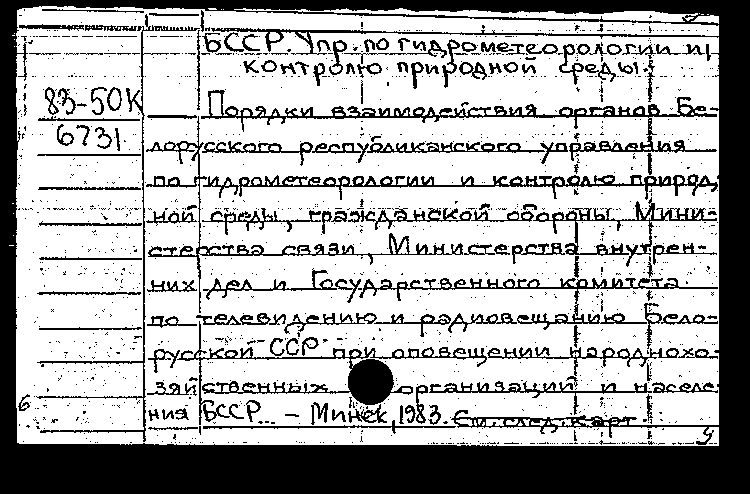 БССР. Упр. по гидрометеорологии и
контролю природной среды.
83-50К
6731
Порядки взаимодействия органов Бе-
лорусского республиканского управления
по гидрометеорологии и контролю природ-
ной среды, гражданской обороны, Мини-
стерства связи, Министерства внутрен-
них дел и Государственного комитета
по телевидению и радиовещанию Бело-
русской ССР при оповещении народнохо-
зяйственных организаций и населе-
ния БССР... – Минск, 1983. См. след. карт.
б